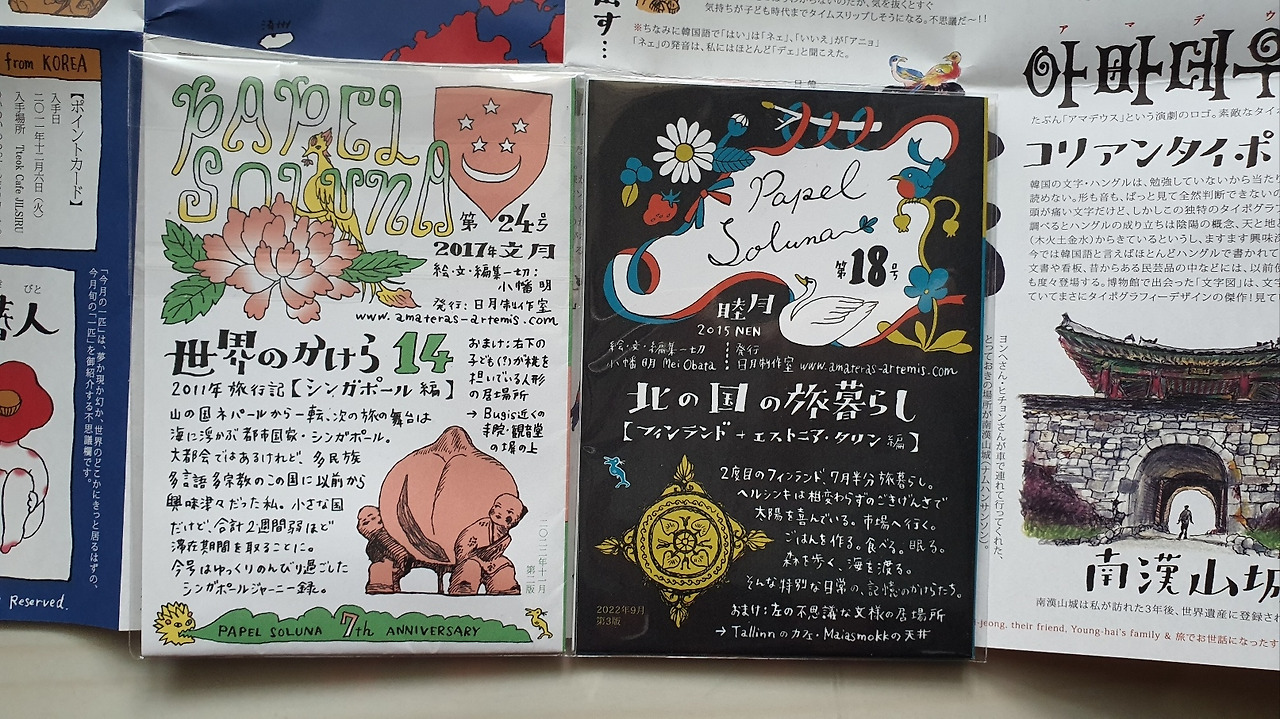 from KOREA
【ポイントカード】
入手日
二〇一一年十二月六日（火）
入手場所 Tteok Cafe JILSIRU
びと
人
「今月の一匹」は、夢か現か幻か、世界のどこかにきっと居るはずの、
今月旬の「一匹」を御紹介する不思議欄です。
Reserved.
出す…
気持ちが子ども時代までタイムスリップしそうになる。不思議だ〜!!
※ちなみに韓国語で「はい」は「ネェ」、「いいえ」が「アニョ」
「ネェ」の発音は、私にはほとんど「デェ」と聞こえた。
PAPEL
SOLUNA
第24号
2017年文月
絵・文・編集一切：
小幡 明
発行：日月制作室
www.amateras-artemis.com
世界のかけら14
2011年旅行記【シンガポール編】
山の国ネパールから一転、次の旅の舞台は
海に浮かぶ都市国家・シンガポール。
大都会ではあるけれど、多民族
多言語多宗教のこの国に以前から
興味津々だった私。小さな国
だけど、合計2週間弱ほど
滞在期間を取ることに。
今号はゆっくりのんびり過ごした
シンガポールジャーニー録。
おまけ：右下の
子ども(?)が桃を
担いでいる人形
の居場所
→Bugis近くの
寺院・観音堂
の塀の上
二〇二二年十一月
第二版
PAPEL SOLUNA 7th ANNIVERSARY
Papel
Soluna
第18号
睦月
2015 NEN
絵・文・編集一切
小幡明 Mei Obata
発行
日月制作室 www.amateras-artemis.com
北の国の旅暮らし
【フィンランド+エストニア・タリン編】
2度目のフィンランド、7月半分旅暮らし。
ヘルシンキは相変わらずのごきげんさで
太陽を喜んでいる。市場へ行く。
ごはんを作る。食べる。眠る。
森を歩く、海を渡る。
そんな特別な日常の、記憶のかけらたち。
おまけ：左の不思議な文様の居場所
→Tallinnのカフェ・Maiasmokkの天井
2022年9月
第3版
アマデウ
아마데우
たぶん「アマデウス」という演劇のロゴ。素敵なタイ
コリアンタイポ
韓国の文字・ハングルは、勉強していないから当たり
読めない。形も音も、ぱっと見て全然判断できないの
頭が痛い文字だけど、しかしこの独特のタイポグラフ
調べるとハングルの成り立ちは陰陽の概念、天と地
(木火土金水)からきているというし、ますます興味
今では韓国語と言えばほとんどハングルで書かれて
文書や看板、昔からある民芸品の中などには、以前
も度々登場する。博物館で出会った「文字図」は、文
ていてまさにタイポグラフィーデザインの傑作!見て
ヨンヘさん・ヒチョンさんが車で連れて行ってくれた、
とっておきの場所が南漢山城（ナムハンサンソン）。
南漢山城
南漢山城は私が訪れた3年後、世界遺産に登録さ
-jeong, their friend, Young-hai's family & 旅でお世話になったす